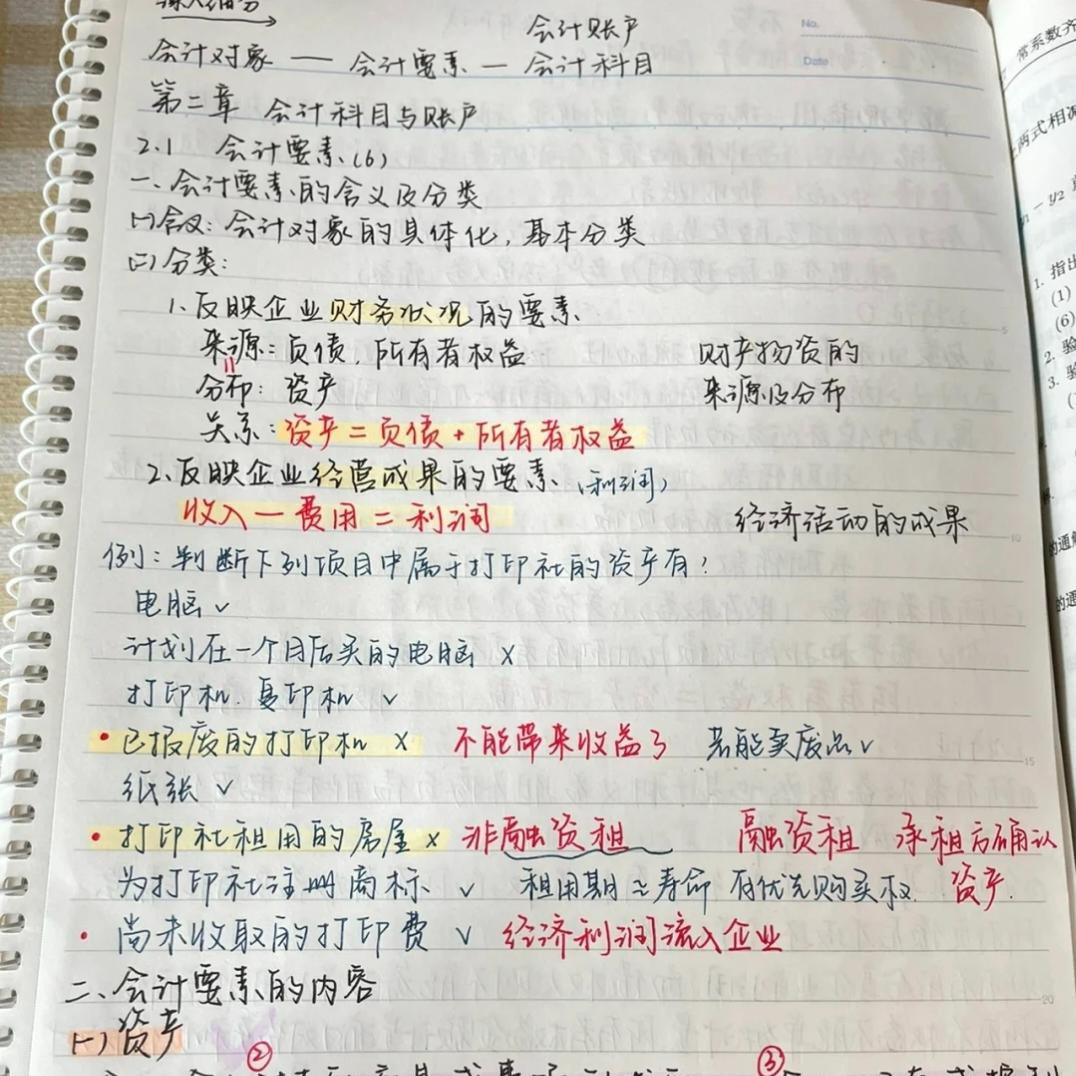 深入细分
会计账户
No.
会计对象 — 会计要素 — 会计科目
Date
第二章 会计科目与账户
2.1 会计要素(6)
一、会计要素的含义及分类
(一)含义：会计对象的具体化，基本分类
(二)分类：
1、反映企业财务状况的要素
来源：负债，所有者权益 财产物资的
分布：资产 来源及分布
关系：资产＝负债＋所有者权益
2、反映企业经营成果的要素（利润）
收入－费用＝利润 经济活动的成果
例：判断下列项目中属于打印社的资产有？
电脑 √
计划在一个月后买的电脑 ×
打印机、复印机 √
• 已报废的打印机 × 不能带来收益了 若能卖废品√
纸张 √
• 打印社租用的房屋 × 非融资租 融资租 承租后确认
为打印社注册商标 √ 租用期≈寿命 有优先购买权 资产.
• 尚未收取的打印费 √ 经济利润流入企业
二、会计要素的内容
(一) 资产
② ③
常系数齐
两式相减
1. 指出
(1)
(6)
2. 验
3. 验
的通解
的通
5
10
15
20